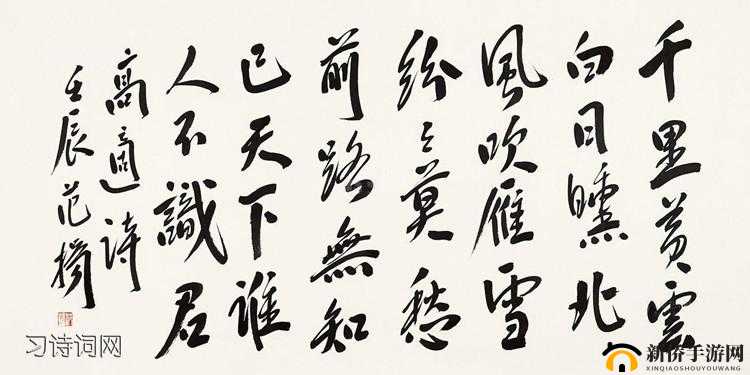 千里黄雲
白日曛北
風吹雁雪
紛〻莫愁
前路無知
己天下谁
人不識君
高適诗
壬辰范揚
习诗词网
新侨手游网
XINQIAOSHOUYOUWANG